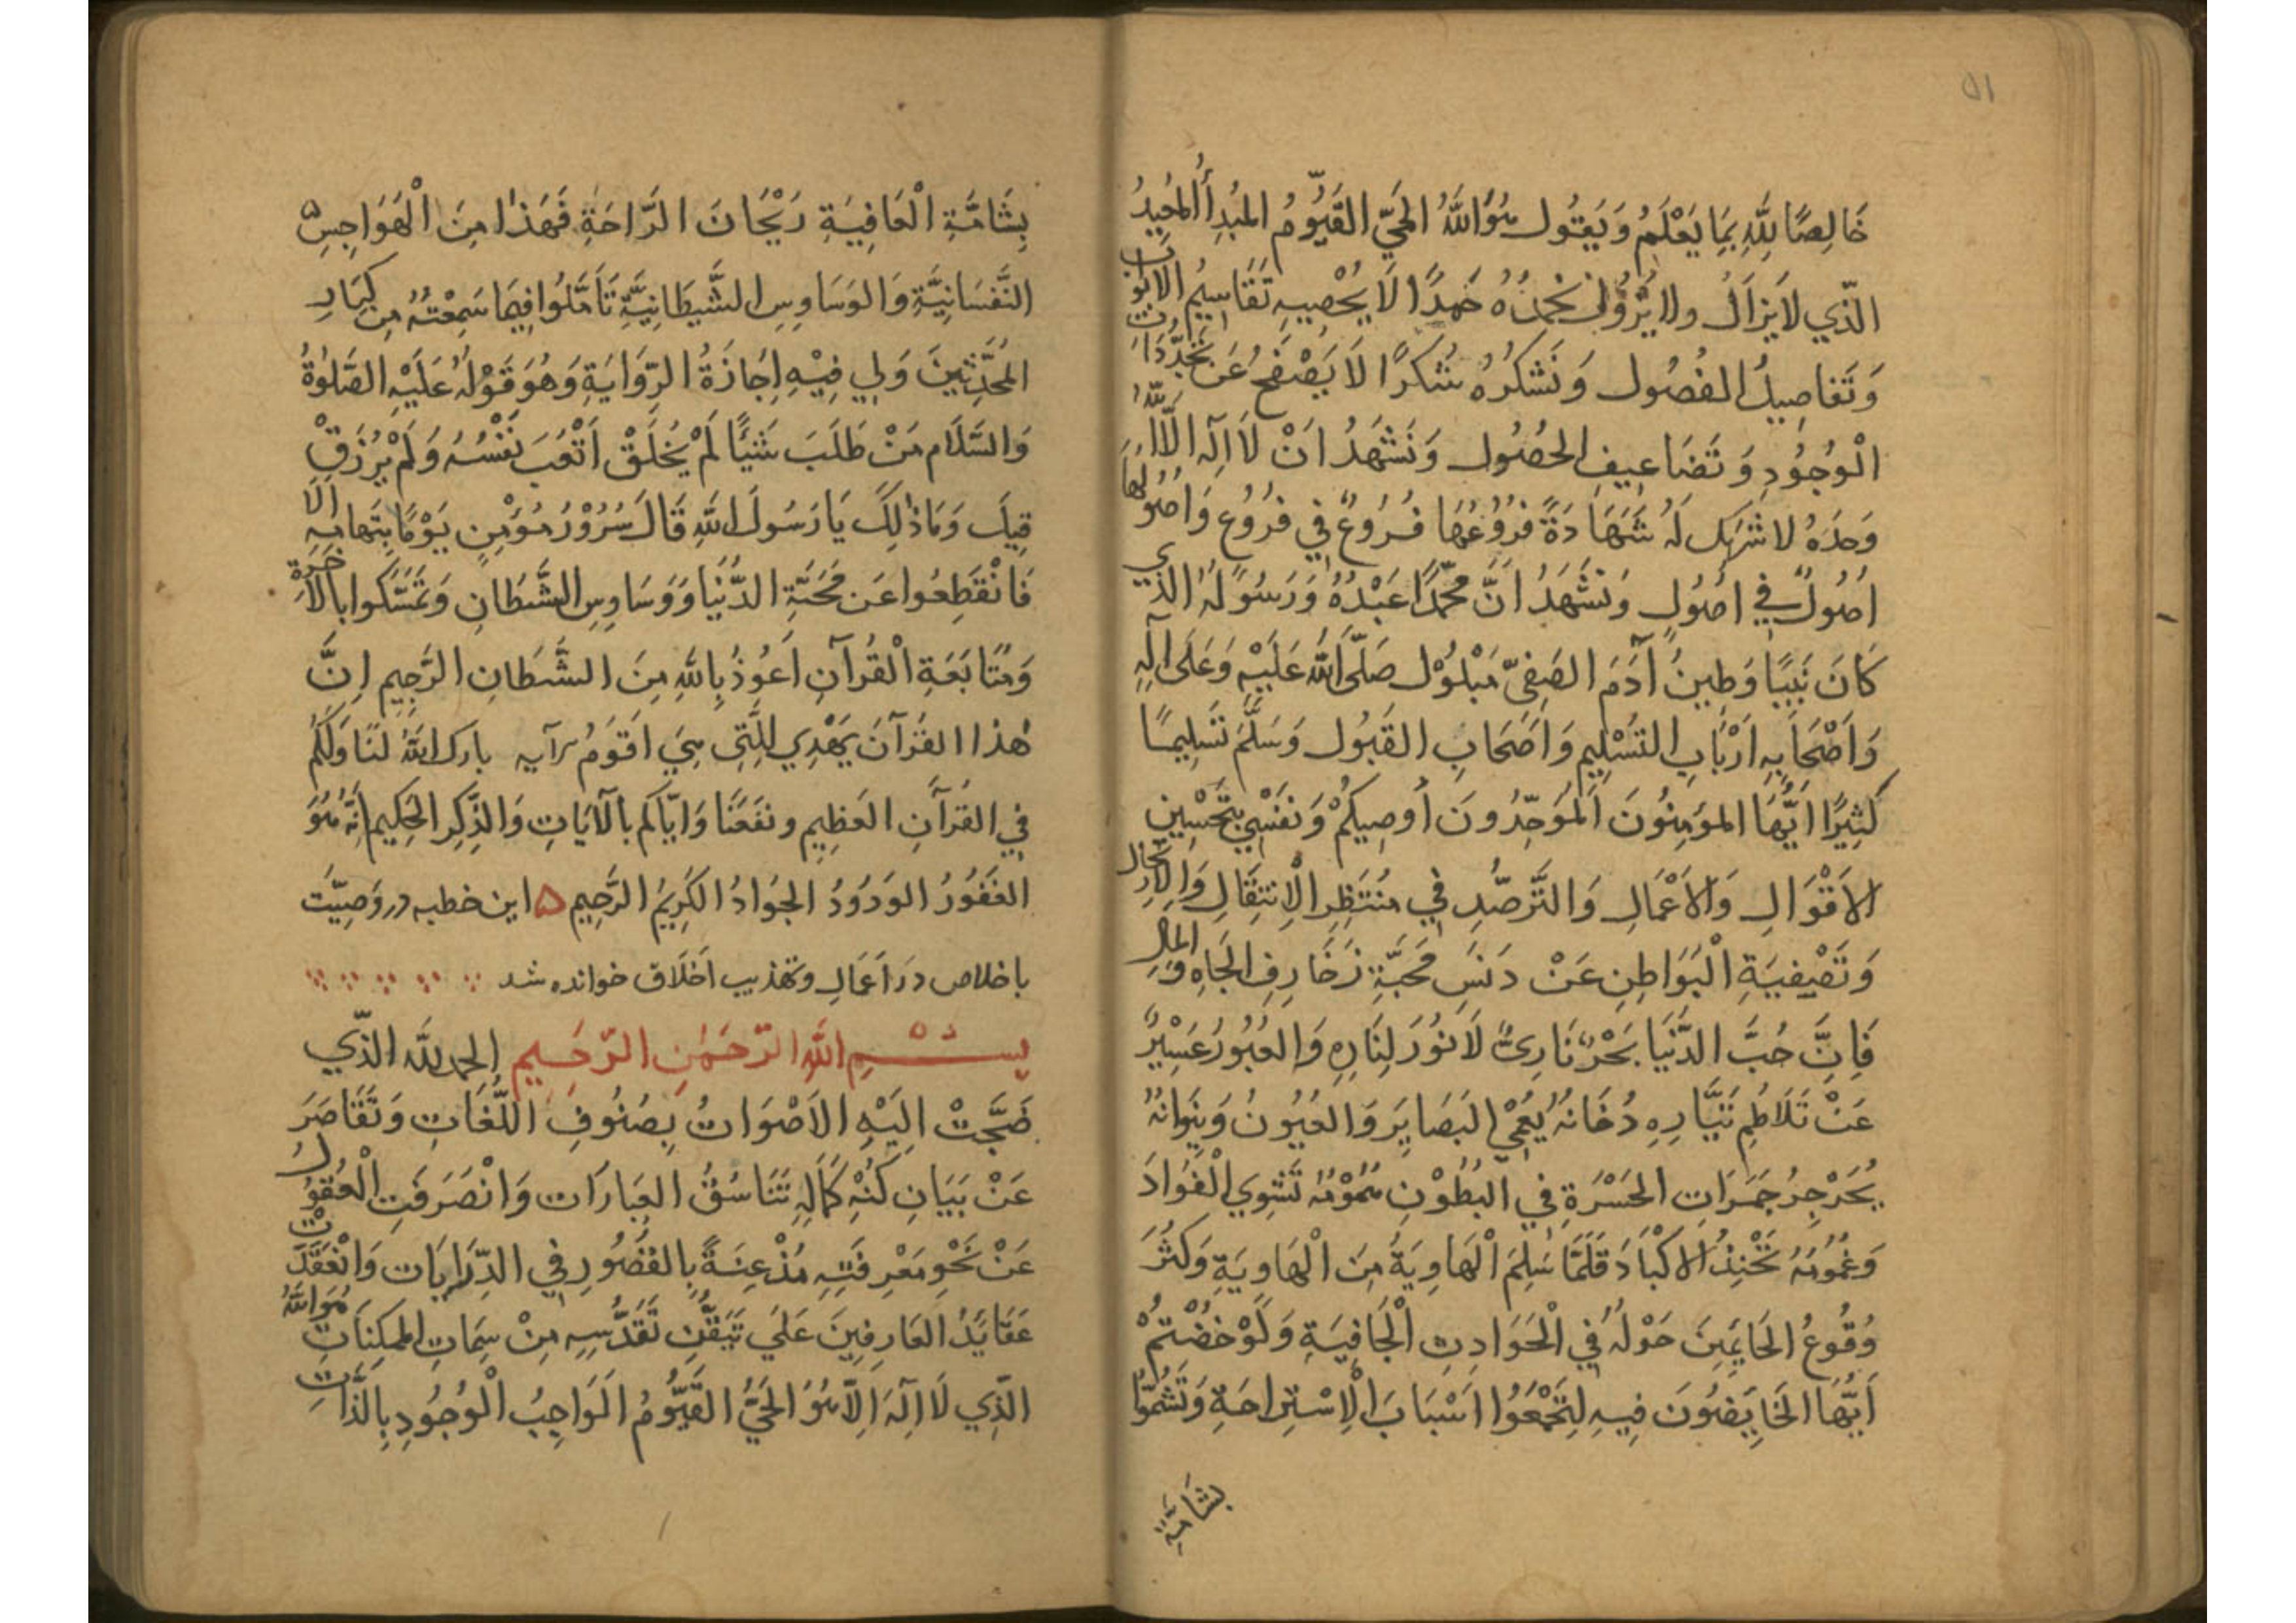 ٥١
خَالِصًا لِلّٰهِ بِمَا يَعْلَمُ وَيَقُول هُوَ اللّٰهُ الحَيّ القَيُّومُ المُبدِأُ المُعِيدُ
الّذِي لَا يَزَالُ ولا يَزُولُ نَحْمَدُهُ حَمدًا لَا يُحْصِيهِ تَقَاسِيمُ الابْوَاب
وَتَفَاصِيلُ الفُصُول وَنَشكُرُهُ شُكرًا لَا يَصْفَحُ عَن تَجَدُّدَات
الْوُجُودِ وَتَضَاعِيفِ الحُصُول وَنَشْهَدُ انْ لَا الٓهَ الَّا اللّٰهُ
وَحدَهُ لا شَرِيكَ لَهُ شَهَادَةً فُرُوعُهَا فُرُوعٌ فِي فُرُوعٍ وَاصُولُهَا
اصُولٌ فِي اصُولٍ وَنَشْهَدُ انَّ مُحَمَّدًا عَبْدُهُ وَرَسُولُهُ الَّذِي
كَانَ نَبِيًا وَطِينُ آدَمَ الصَفِيّ مَبْلُوْل صَلَّى اللّٰهُ عَلَيْهِ وَعَلَى الِهِ
وَاَصْحَابِهِ اَرْبَابِ التَّسْلِيمِ وَاَصْحَابِ القَبُول وَسَلَّمَ تَسْلِيمًا
كَثِيرًا ايُّهَا المُؤمِنُونَ المُوَحِّدُونَ اُوصِيكُمْ وَنَفْسِي بِتَحْسِينِ
الاَقْوَالِ وَالاَعْمَالِ وَالتَّرَصُّدِ فِي مُنتَظَرِ الْاِنتِقَالِ وَالِارْتِحَالِ
وَتَصْفِيَةِ الْبَوَاطِنِ عَنْ دَنَسِ مَحَبَّةِ زَخَارِفِ الجَاهِ وَالمَالِ
فَاِنَّ حُبَّ الدُّنيَا بَحْرٌ نَارِيٌّ لَا نُورَ لِنَارِهِ وَالعُبُورُ عَسِيْرٌ
عَنْ تَلَاطُمِ تَيَّارِهِ دُخَانُهُ يُعْمِي الْبَصَايِرَ وَالعُيُونُ وَنِيرَانُهُ
يُجَرْجِرُ جَمَرَاتِ الحَسْرَةِ فِي البُطُوْنِ هُمُوْمُهُ تَشْوِي الْفُوَادَ
وَغُمُومُهُ تَحْنِذُ الاكْبَادَ قَلَّمَا سَلِمَ الْهَاوِيَةُ مِنَ الْهَاوِيَةِ وَكَثُرَ
وُقُوعُ الحَايِمِينَ حَوْلَهُ فِي الْحَوَادِثِ الْجَافِيَةِ وَلَوْ خُضْتُمْ
اَيُّهَا الخَايِضُونَ فِيهِ لِتَجْمَعُوا اَسْبَابَ الْاِسْتِرَاحَةِ وَتَشُمُّوا
بشَامَّةِ
بِشَامَّةِ الْعَافِيَةِ رَيْحَانَ الرَّاحَةِ فَهَذَا مِنَ الْهَوَاجِسِ
النَّفسَانِيَّةِ وَالوَسَاوِسِ الشَّيطَانِيَّةِ تَأَمَّلُوا فِيمَا سَمِعْتُهُ مِن كِبَارِ
المُحَدِّثِينَ وَلِي فِيْهِ اِجَازَةُ الرِّوَايَةِ وَهُوَ قَوْلُهُ عَلَيْهِ الصَّلٰوةُ
وَالسَّلَام مَنْ طَلَبَ شَيْئًا لَمْ يُخلَقْ اَتْعَبَ نَفْسُهُ وَلَمْ يُرْزَقْ
قِيلَ وَمَا ذٰلِكَ يَا رَسُولَ اللّٰهِ قَالَ سُرُوْرُ مُؤْمِنٍ يَوْمًا بِتَمَامِهِ الَا
فَانْقَطِعُوا عَن مَحَبَّةِ الدُّنْيَا وَوَسَاوِسِ الشَّيطَانِ وَتَمَسَّكُوا بالاٰخِرَةِ
وَمُتَابَعَةِ الْقُرآنِ اَعُوذُ بِاللّٰهِ مِنَ الشَّيطَانِ الرَّجِيمِ اِنَّ
هٰذا القُرآنَ يَهْدِي لِلَّتِي هِيَ اَقوَمُ آيه بارك اللّٰهُ لَنَا وَلَكُمْ
فِي القُرآنِ العَظِيمِ ونَفَعَنَا وَايّاكم بالآيَاتِ وَالذِّكِر الحَكِيمِ اِنَّهُ هُوَ
الغَفُورُ الوَدُودُ الجَوَادُ الكَرِيمُ الرَّحِيم ۵ اين خطبه در وَصِيّت
باخلاص دَر اَعمَالِ وتهذيب اَخلَاق خوانده شد
بِسْـــمِ اللّٰهِ الرَّحمٰنِ الرَّحِيمِ الحمد لِلّٰهِ الَّذِي
ضَجَّتْ اِلَيْهِ الاَصْوَاتُ بِصُنُوفِ اللُّغَاتِ وَتَقَاصَرَ
عَنْ بَيَانِ كُنْهِ كَمَالِهِ تَنَاسُقُ العِبَارَات وَانْصَرَفَتِ الْعُقُول
عَنْ نَحْوِ مَعْرِفَتِهِ مُذْعِنَةً بِالقُصُورِ فِي الدِّرَايَات وَانْعَقَدَتْ
عَقَائِدُ العَارِفِينَ عَلَى تَيَقُّنِ تَقَدُّسِهِ مِنْ سِمَاتِ المُمكِنَاتِ هُوَ اللّٰهُ
الَّذِي لَا اِلَهَ اِلَّا هُوَ الحَيُّ القَيُّومُ الوَاجِبُ الْوُجُودِ بِالذَّاتِ